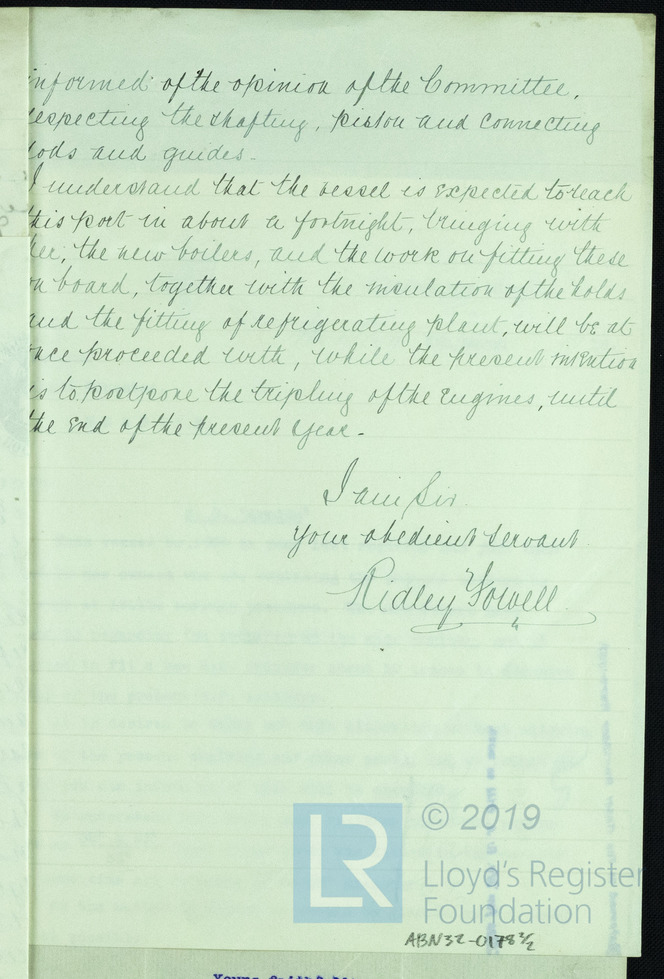 informed of the opinion of the Committee,
respecting the shafting, piston and connecting
rods and guides.
I understand that the vessel is expected to reach
this port in about a fortnight, bringing with
her, the new boilers, and the work on fitting these
on board, together with the insulation of the holds
and the fitting of refrigerating plant, will be at
once proceeded with, while the present intention
is to postpone the tripling of the Engines, until
the End of the present year.
I am Sir.
Your obedient servant.
Ridley
© 2019
LR
Lloyd's Register
Foundation
ABN32-0178 2/2